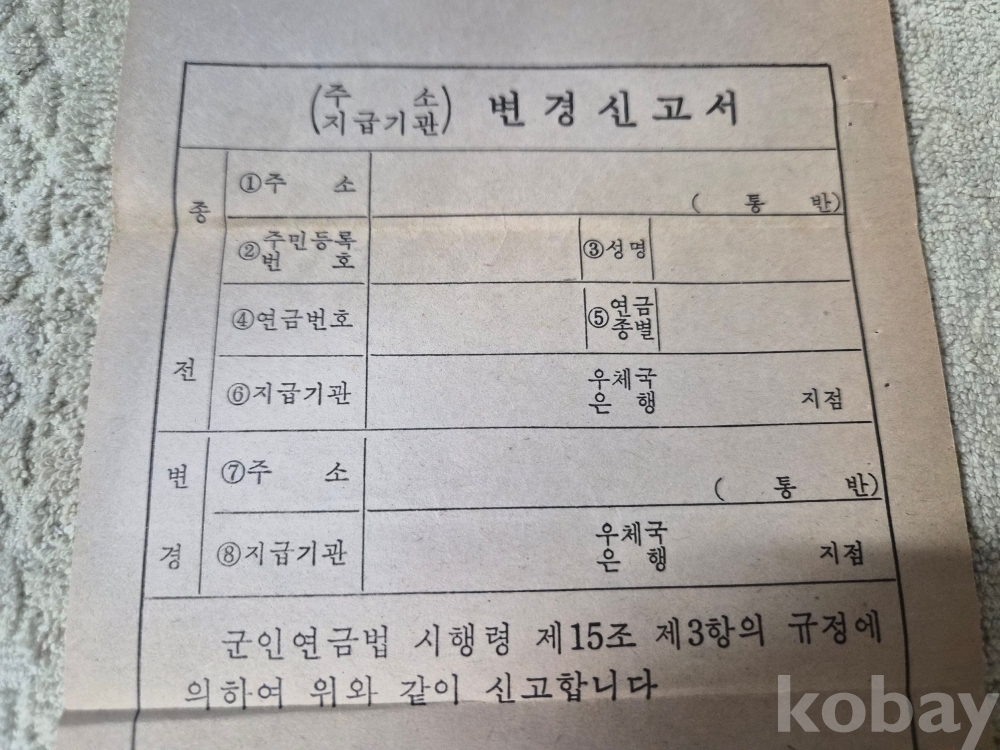 (주 소 지급기관) 변경신고서
종전
①주 소
( 통 반)
②주민등록번호
③성명
④연금번호
⑤연금종별
⑥지급기관
우체국
은 행 지점
변경
⑦주 소
( 통 반)
⑧지급기관
우체국
은 행 지점
군인연금법 시행령 제15조 제3항의 규정에
의하여 위와 같이 신고합니다
kobay